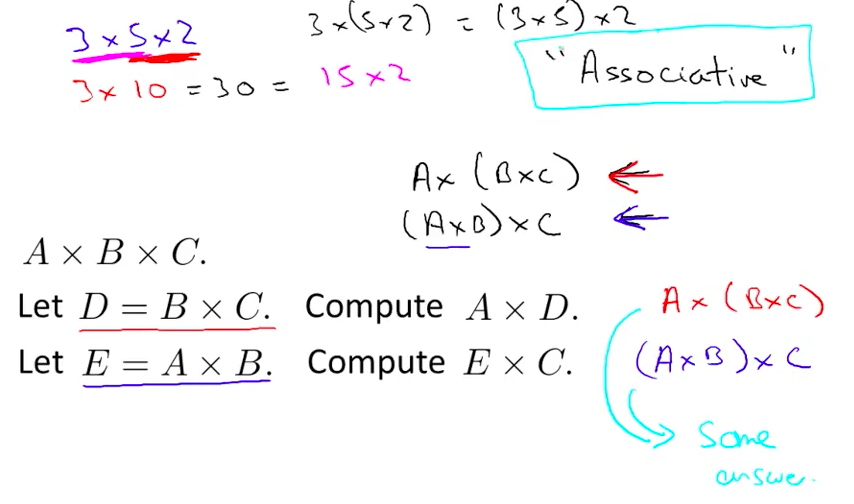 3 × 5 × 2
3 × (5 × 2) = (3 × 5) × 2
3 × 10 = 30 = 15 × 2
"Associative"
A × (B × C)
(A × B) × C
A × B × C.
Let D = B × C. Compute A × D.
Let E = A × B. Compute E × C.
A × (B × C)
(A × B) × C
Same
answer.